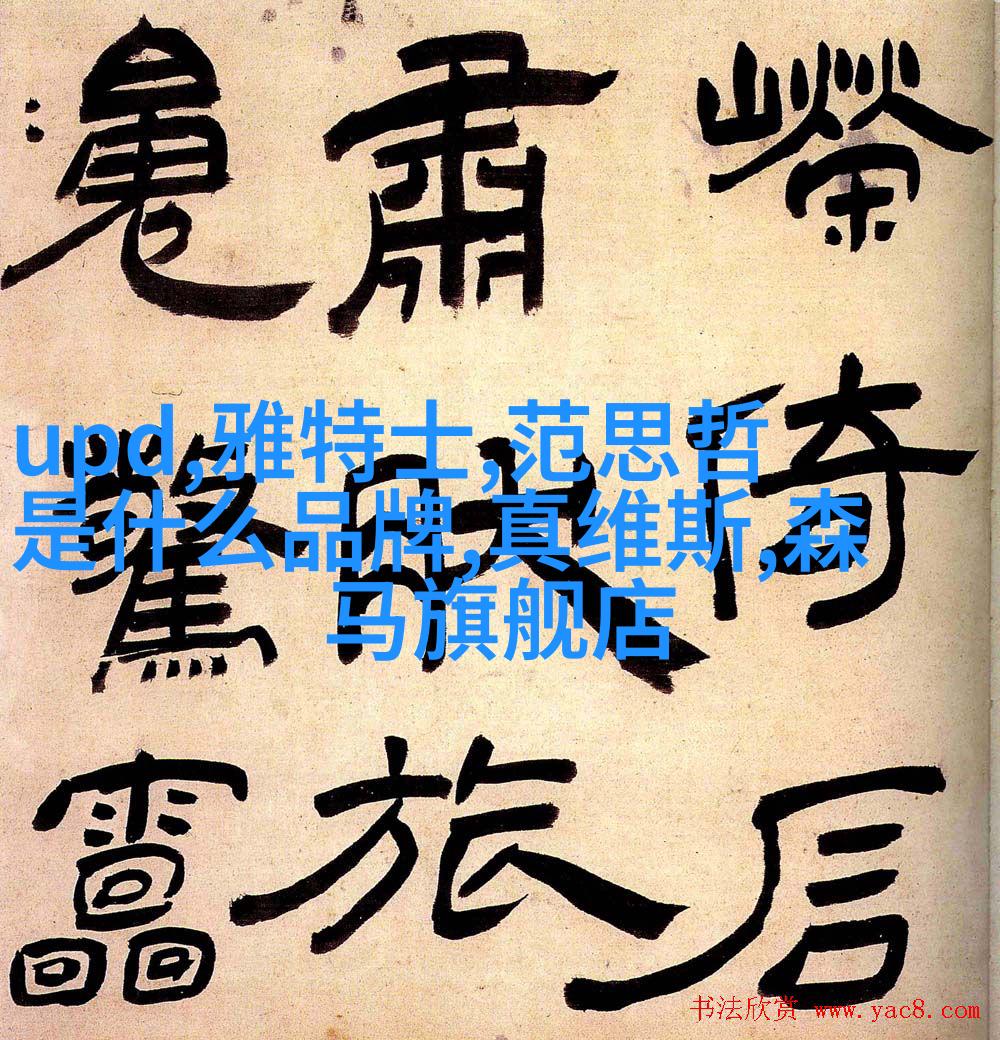 嶸倚
肅旅
驚靁
upd,雅特士,范思哲
是什么品牌,真维斯,森
马旗舰店
书法欣赏 www.yac8.com